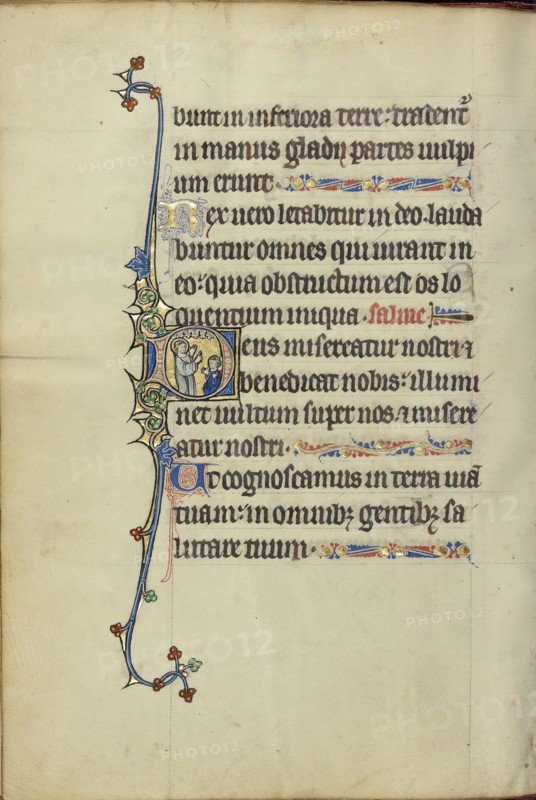 bunt in inferiora terre: tradentᷣ
in manus gladij partes uulpi
um erunt.
Rex uero letabitur in deo. lauda
buntur omnes qui iurant in
eo: quia obstructum est os lo
quentium iniqua. salme
Deus misereatur nostri ⁊
benedicat nobis: illumi
net uultum super nos ⁊ misere
atur nostri.
Ut cognoscamus in terra uiā
tuam: in omnibꝫ gentibꝫ sa
lutare tuum.
PHOTO12